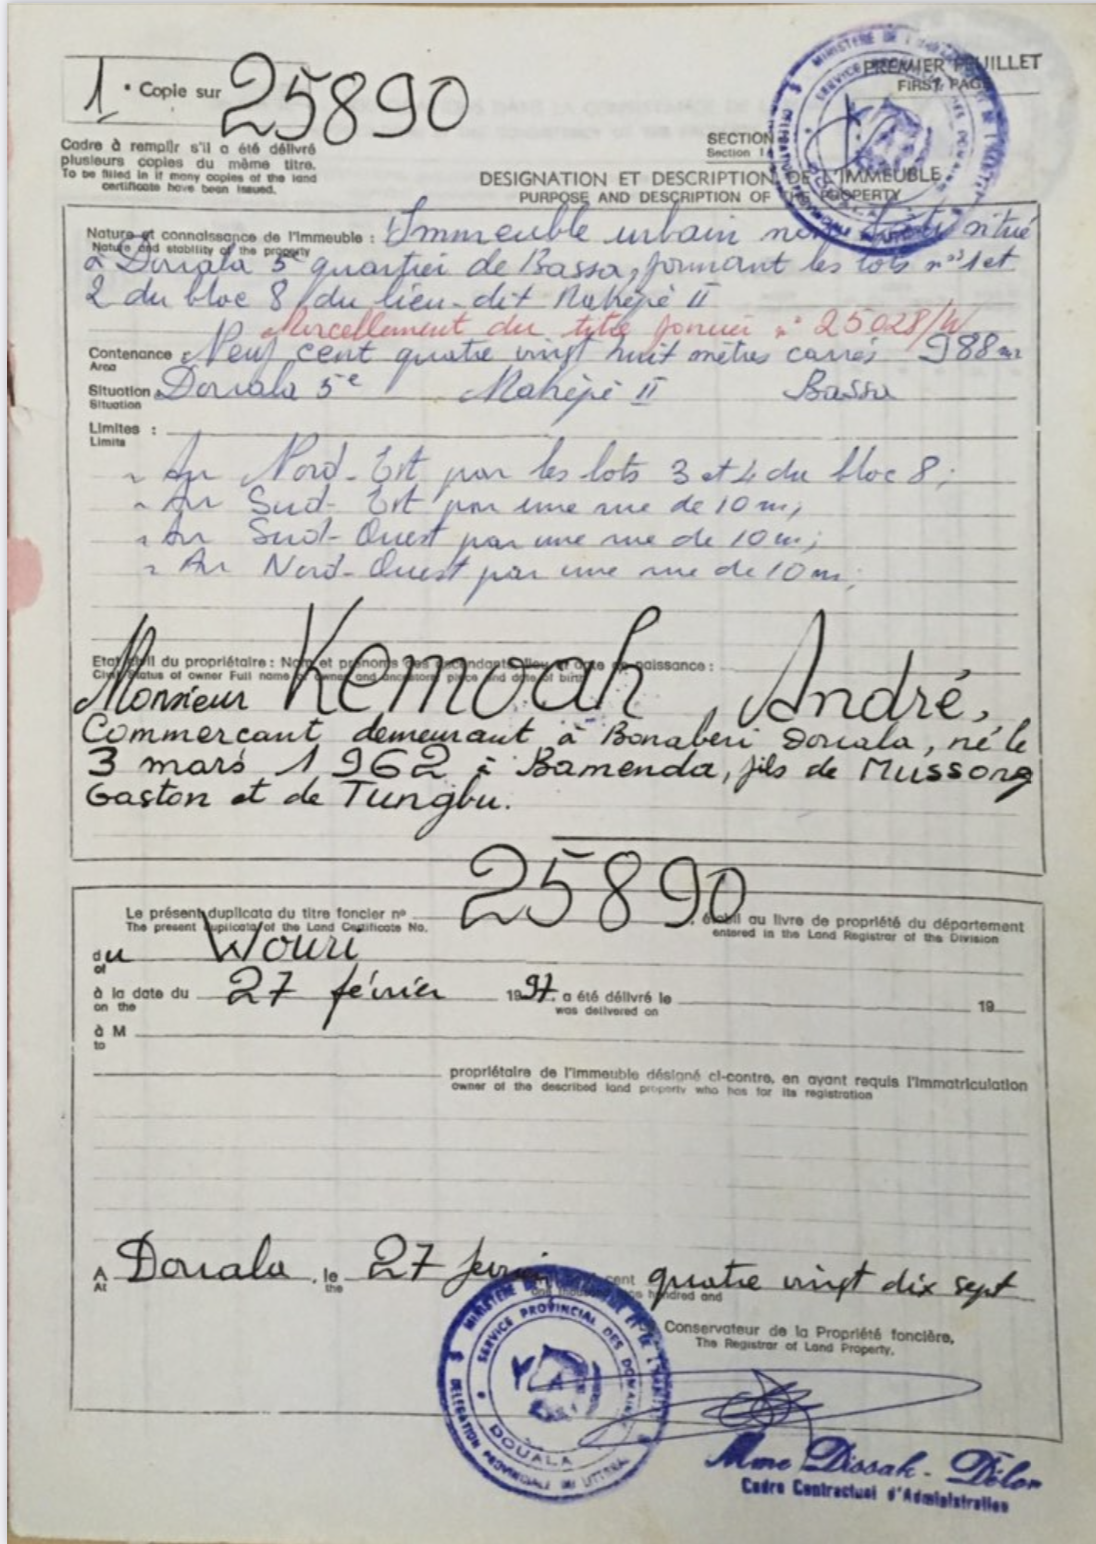 1 · Copie sur 25890
Cadre à remplir s'il a été délivré
plusieurs copies du même titre.
To be filled in if many copies of the land
certificate have been issued.
PREMIER FEUILLET
FIRST PAGE
SECTION
Section 1
DESIGNATION ET DESCRIPTION DE L'IMMEUBLE
PURPOSE AND DESCRIPTION OF THE PROPERTY
Nature et connaissance de l'Immeuble : Immeuble urbain non situé
Nature and stability of the property
à Douala 5e quartier de Bassa, formant les lots nos 1 et
2 du bloc 8 du lieu-dit Makèpè II
Morcellement du titre foncier n° 25028/W
Contenance : Neuf cent quatre vingt huit mètres carrés 988 m2
Area
Situation Douala 5e Makèpè II Bassa
Situation
Limites :
Limits
- Au Nord-Est par les lots 3 et 4 du bloc 8;
- Au Sud-Est par une rue de 10 m;
- Au Sud-Ouest par une rue de 10 m;
- Au Nord-Ouest par une rue de 10 m;
Etat civil du propriétaire : Nom et prénoms des ascendants, lieu et date de naissance :
Civil status of owner Full name of owner and ancestors, place and date of birth
Monsieur Kemvoah André,
Commerçant demeurant à Bonaberi Douala, né le
3 mars 1962 à Bamenda, fils de Mussong
Gaston et de Tungbu.
Le présent duplicata du titre foncier n° 25890, établi au livre de propriété du département
The present duplicata of the Land Certificate No. entered in the Land Registrar of the Division
du Wouri
of
à la date du 27 février 1997. a été délivré le 19
on the was delivered on
à M
to
propriétaire de l'immeuble désigné ci-contre, en ayant requis l'immatriculation
owner of the described land property who has for its registration
A Douala, le 27 février cent quatre vingt dix sept
At the one thousand nine hundred and
Conservateur de la Propriété foncière,
The Registrar of Land Property,
SERVICE PROVINCIAL DES DOMAINES
DELEGATION PROVINCIALE DU LITTORAL
DOUALA
Mme Dissak - Délor
Cadre Contractuel d'Administration